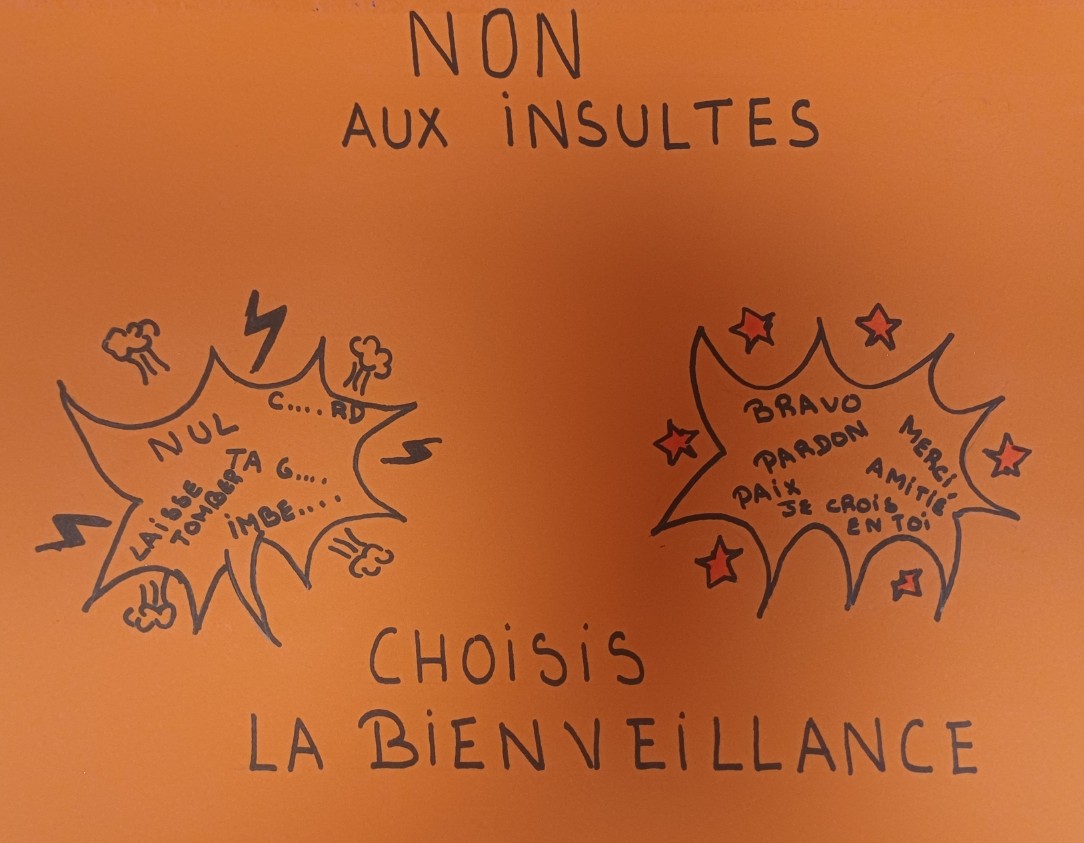 NON
AUX INSULTES
C....RD
NUL
TA G....
LAISSE
TOMBER
IMBE....
BRAVO
PARDON
MERCI
AMITIÉ
PAIX
JE CROIS
EN TOI
CHOISIS
LA BIENVEILLANCE